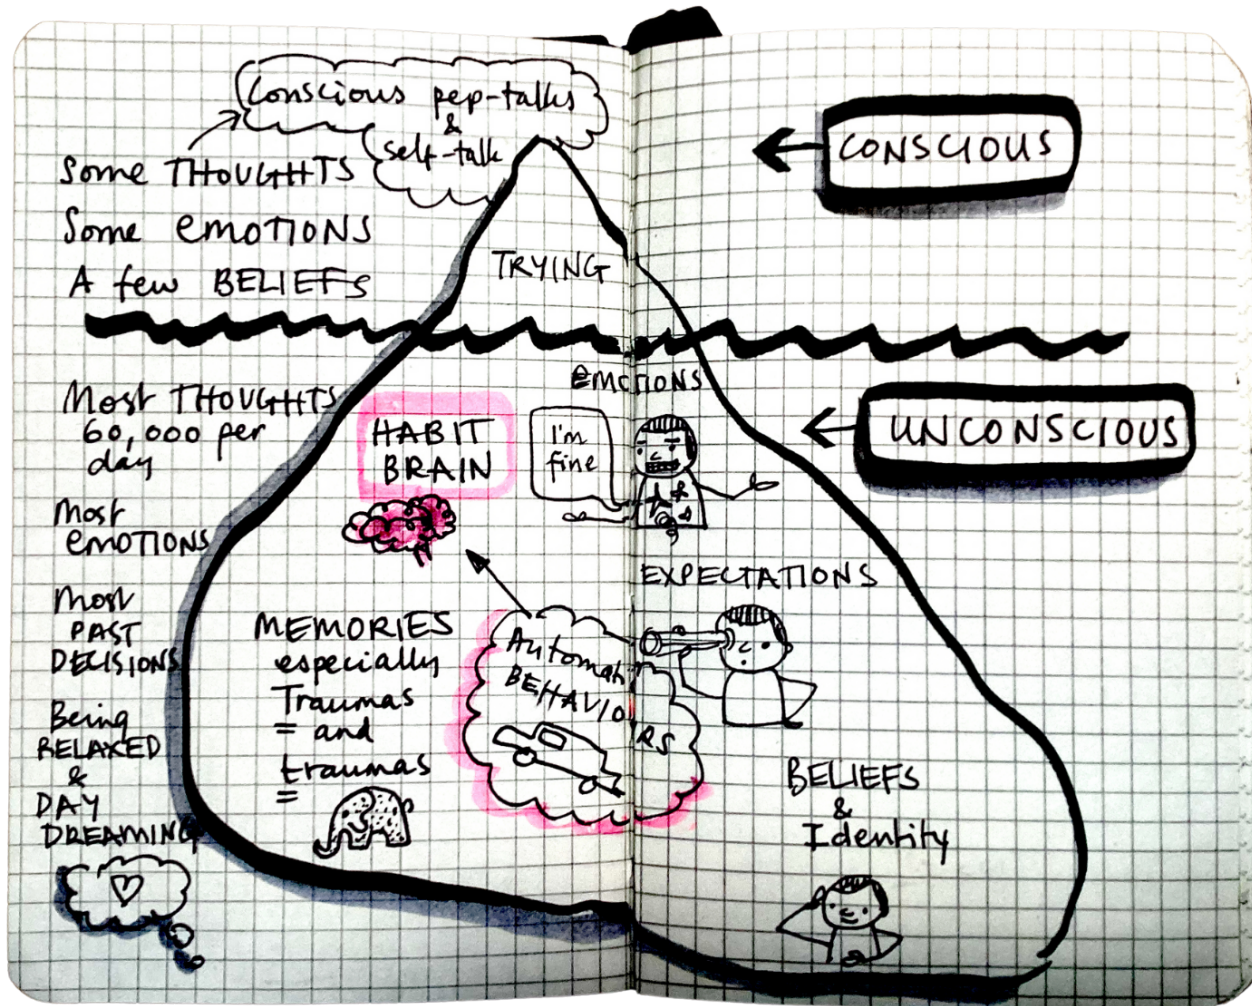 Conscious pep-talks
&
self-talk
Some THOUGHTS
Some EMOTIONS
A few BELIEFS
TRYING
CONSCIOUS
Most THOUGHTS
60,000 per
day
Most
EMOTIONS
Most
PAST
DECISIONS
Being
RELAXED
&
DAY
DREAMING
HABIT
BRAIN
EMOTIONS
I'm
fine
UNCONSCIOUS
EXPECTATIONS
MEMORIES
especially
Traumas
and
traumas
Automatic
BEHAVIOURS
BELIEFS
&
Identity